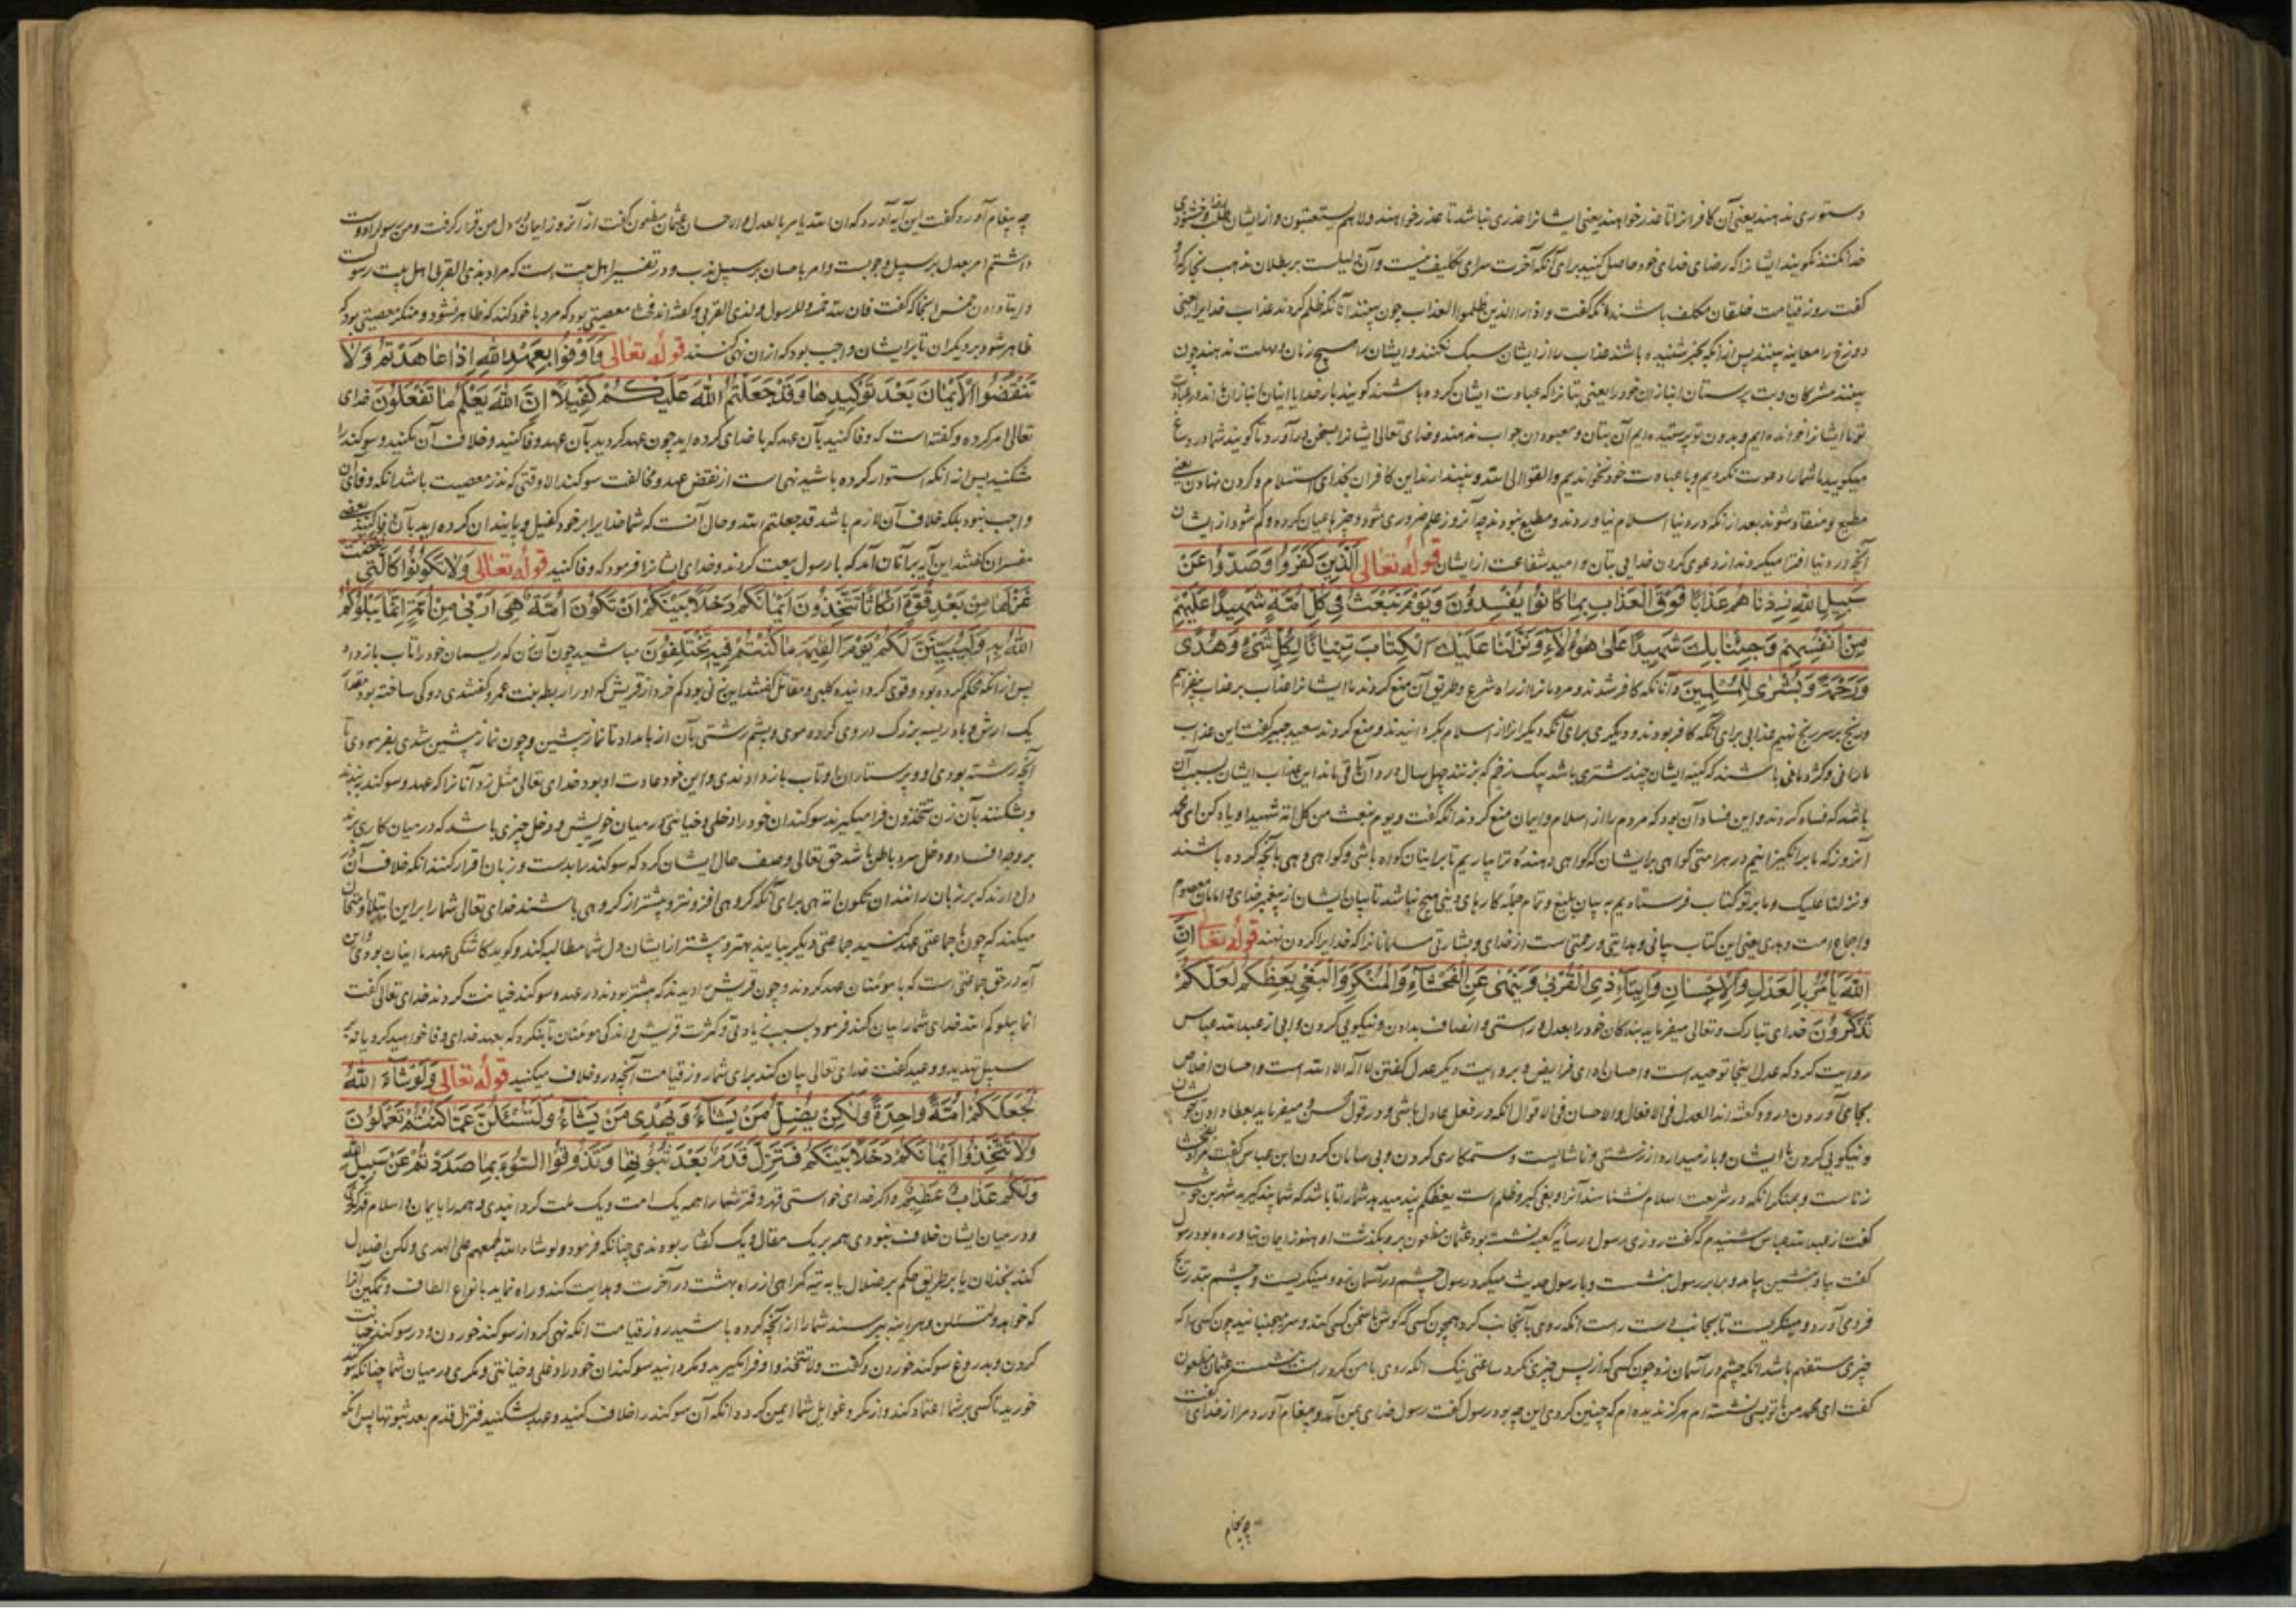 دستوری ندهند یعنی آن کافرانرا تا عذر خواهند یعنی ایشانرا عذری نباشد تا عذر خواهند ولا هم یستعتبون و از ایشان طلب خشنودی
خدا نکنند نگویند ایشانرا که رضای خدای خود حاصل کنید برای آنکه آخرت سرای تکلیف نیست و آن دلیلست بر بطلان مذهب نجار که او
گفت روز قیامت خلقان مکلف باشند آنکه گفت و اذا را الذین ظلموا العذاب چون بینند آنانکه ظلم کردند عذاب خدایرا یعنی
دوزخ را معاینه بینند پس از آنکه بخبر شنیده باشند عذاب را از ایشان سبک نکنند و ایشانرا هیچ زمان و مهلت ندهند چون
بینند مشرکان و بت پرستان انبازان خود را یعنی بتانرا که عبادت ایشان کرده باشند گویند بار خدایا اینان انبازان اند در عبادت
تو ما ایشانرا خوانده ایم و بدون تو پرستیده ایم آن بتان و معبودان جواب ندهند و خدای تعالی ایشانرا بسخن درآورد تا گویند شما دروغ
میگویید ما شما را دعوت نکردیم و با عبادت خود نخواندیم والقوا الی الله و بیندازند این کافران بخدای استسلام و گردن نهادن یعنی
مطیع و منقاد شوند بعد از آنکه در دنیا اسلام نیاوردند و مطیع نبودند چه آنروز علم ضروری شود و خبرها عیان گردد و گم شود از ایشان
آنچه در دنیا افترا میکردند از دعوی کردن خدایی بتان و امید شفاعت از ایشان قوله تعالی الَّذِینَ کَفَرُوا وَصَدُّوا عَنْ
سَبِیلِ اللهِ زِدْنَاهُمْ عَذَابًا فَوْقَ الْعَذَابِ بِمَا کَانُوا یُفْسِدُونَ وَیَوْمَ نَبْعَثُ فِی کُلِّ اُمَّةٍ شَهِیدًا عَلَیْهِمْ
مِنْ اَنْفُسِهِمْ وَجِئْنَا بِکَ شَهِیدًا عَلَی هؤُلَاءِ وَنَزَّلْنَا عَلَیْکَ الْکِتَابَ تِبْیَانًا لِکُلِّ شَیْءٍ وَهُدًی
وَرَحْمَةً وَبُشْرَی لِلْمُسْلِمِینَ و آنانکه کافر شدند و مردمانرا از راه شرع و طریق آن منع کردند ما ایشانرا عذاب بر عذاب بیفزاییم
و رنج بر سر رنج نهیم عذابی برای آنکه کافر بودند و دیگری برای آنکه دیگرانرا از اسلام بگردانیدند و منع کردند سعید جبیر گفت این عذاب
مارانی و کژدمانی باشند که کمینه ایشان چند شتری باشد یک زخم که بزنند چهل سال درد آن باقی ماند این عذاب ایشان بسبب آن
باشد که فساد کردند و این فساد آن بود که مردم را از اسلام و ایمان منع کردند آنکه گفت و یوم نبعث من کل امة شهیدا و یاد کن ای محمد
آنروز که ما برانگیزانیم در هر امتی گواهی بر ایشان که گواهی دهنده ترا بیاریم تا بر اینان گواه باشی و گواهی دهی بآنچه کرده باشند
و نزلنا علیک و ما بر تو کتاب فرستادیم به بیان بلیغ و تمام جمله کارهای دینی هیچ نباشد تا بیان ایشان از پیغمبر خدای و امامان معصوم
و اجماع امت و هدی یعنی این کتاب بیانی و هدایتی و رحمتی است از خدای و بشارتی مسلمانانرا که خدایرا گردن نهند قوله تعالی اِنَّ
اللهَ یَأْمُرُ بِالْعَدْلِ وَالْاِحْسَانِ وَاِیتَاءِ ذِی الْقُرْبَی وَیَنْهَی عَنِ الْفَحْشَاءِ وَالْمُنْکَرِ وَالْبَغْیِ یَعِظُکُمْ لَعَلَّکُمْ
تَذَکَّرُونَ خدای تبارک و تعالی میفرماید بندگان خود را بعدل و راستی و انصاف بدادن و نیکویی کردن و ابی از عبدالله عباس
روایت کرد که عدل اینجا توحید است و احسان ادای فرایض و بروایت دیگر عدل گفتن لا اله الا الله است و احسان اخلاص
بجای آوردن در و گفته اند العدل فی الافعال والاحسان فی الاقوال آنکه در فعل عادل باشی و در قول محسن و میفرماید بعطا دادن خویشان
و نیکویی کردن با ایشان و باز میدارد از زشتی و ناشایست و ستمکاری کردن و بی سامان کردن ابن عباس گفت مراد بفحشا
زناست و بمنکر آنکه در شریعت اسلام نشناسند آنرا و بغی کبر و ظلم است یعظکم پند میدهد شما را تا باشد که شما پند گیرید شهر بن حوشب
گفت از عبدالله عباس شنیدم که گفت روزی رسول در سایه کعبه نشسته بود عثمان مظعون برو بگذشت او هنوز ایمان نیاورده بود رسول
گفت بیا و بنشین بیامد و برابر رسول بنشست و با رسول حدیث میکرد رسول چشم در آسمان زد و مینگریست و چشم بتدریج
فرومی آورد و مینگریست تا بجانب دست راست آنکه روی بآنجانب کرد همچون کسی که گوش با سخن کسی کند و سر میجنبانید چون کسی را که
چیزی مستفهم باشد آنکه چشم در آسمان زد چون کسی که از پس چیزی نگرد ساعتی نیک آنکه روی با من کرد راست بنشست عثمان مظعون
گفت ای محمد من با تو بسی نشسته ام هرگز ندیده ام که چنین کردی این چه بود رسول گفت رسول خدای بمن آمد و پیغام آورد مرا از خدای گفت
چه پیغام
چه پیغام آورد گفت این آیه آورد که ان الله یامر بالعدل والاحسان عثمان مظعون گفت از آنروز ایمان در دل من قرار گرفت و من رسولرا دوست
داشتم امر بعدل بر سبیل وجوبست و امر باحسان بر سبیل ندب و در تفسیر اهل بیت است که مراد بذی القربی اهل بیت رسولست
و ایتا دادن خمس اینجا که گفت فان لله خمسه وللرسول ولذی القربی و گفته اند فحشا معصیتی بود که مرد با خود کند که ظاهر نشود و منکر معصیتی بود که
ظاهر شود بر دیگران تا بر ایشان واجب بود که از آن نهی کنند قوله تعالی وَاَوْفُوا بِعَهْدِ اللهِ اِذَا عَاهَدْتُمْ وَلَا
تَنْقُضُوا الْاَیْمَانَ بَعْدَ تَوْکِیدِهَا وَقَدْ جَعَلْتُمُ اللهَ عَلَیْکُمْ کَفِیلًا اِنَّ اللهَ یَعْلَمُ مَا تَفْعَلُونَ خدای
تعالی امر کرده و گفته است که وفا کنید بآن عهد که با خدای کرده اید چون عهد کردید بآن عهد وفا کنید و خلاف آن نکنید و سوگند را
مشکنید پس از آنکه استوار کرده باشید نهی است از نقض عهد و مخالفت سوگند الا وقتی که نذر معصیت باشد آنکه وفای آن
واجب نبود بلکه خلاف آن لازم باشد قد جعلتم الله و حال آنست که شما خدایرا بر خود کفیل و پایندان کرده اید بآن وفا کنید بعضی
مفسران گفتند این آیه در آنان آمد که با رسول بیعت کردند و خدای ایشانرا فرمود که وفا کنید قوله تعالی وَلَا تَکُونُوا کَالَّتِی نَقَضَتْ
غَزْلَهَا مِنْ بَعْدِ قُوَّةٍ اَنْکَاثًا تَتَّخِذُونَ اَیْمَانَکُمْ دَخَلًا بَیْنَکُمْ اَنْ تَکُونَ اُمَّةٌ هِیَ اَرْبَی مِنْ اُمَّةٍ اِنَّمَا یَبْلُوکُمُ
اللهُ بِهِ وَلَیُبَیِّنَنَّ لَکُمْ یَوْمَ الْقِیَمَةِ مَا کُنْتُمْ فِیهِ تَخْتَلِفُونَ مباشید چون آن زن که ریسمان خود را تاب باز داد
پس از آنکه محکم کرده بود و قوی گردانیده کلبی و مقاتل گفتند این زنی بود کم خرد از قریش که او را ریطه بنت عمرو گفتندی دوکی ساخته بود مقدار
یک ارش و بادریسه بزرگ در وی کرده موی و پشم رشتی بآن از بامداد تا نماز پیشین و چون نماز پیشین شدی بفرمودی تا
آنچه رشته بودی او و پرستاران او تاب باز دادندی و این خود عادت او بود خدای تعالی مثل زد آنانرا که عهد و سوگند ببندند
و بشکنند بآن زن تتخذون فرا میگیرند سوگندان خود را دخلی و خیانتی در میان خویش و دخل چیزی باشد که در میان کاری برند
بر وجه افساد و دخل سرد باطن باشد حق تعالی وصف حال ایشان کرد که سوگند را بدست و زبان اقرار کنند آنکه خلاف آن در
دل دارند که بر زبان رانند ان تکون امة هی برای آنکه گروهی افزونتر و بیشتر از گروهی باشند خدای تعالی شما را بر این ابتلا و امتحان
میکند که چون با جماعتی عهد کنید جماعتی دیگر بیایند بهتر و بیشتر از ایشان دل شما مطالبه کند و گوید کاشکی عهد ما با اینان بودی و این
آیه در حق جماعتی است که با مؤمنان عهد کردند و چون قریش را دیدند که بیشتر بودند در عهد و سوگند خیانت کردند خدای تعالی گفت
انما یبلوکم الله خدای شما را بیان کند فرمود بسبب زیادتی و کثرت قریش و اندکی مؤمنان تا بنگرد که بعهد خدای وفا خواهید کرد یا نه بر
سبیل تهدید و وعید گفت خدای تعالی بیان کند برای شما روز قیامت آنچه درو خلاف میکنید قوله تعالی وَلَوْ شَاءَ اللهُ
لَجَعَلَکُمْ اُمَّةً وَاحِدَةً وَلَکِنْ یُضِلُّ مَنْ یَشَاءُ وَیَهْدِی مَنْ یَشَاءُ وَلَتُسْئَلُنَّ عَمَّا کُنْتُمْ تَعْمَلُونَ
وَلَا تَتَّخِذُوا اَیْمَانَکُمْ دَخَلًا بَیْنَکُمْ فَتَزِلَّ قَدَمٌ بَعْدَ ثُبُوتِهَا وَتَذُوقُوا السُّوءَ بِمَا صَدَدْتُمْ عَنْ سَبِیلِ اللهِ
وَلَکُمْ عَذَابٌ عَظِیمٌ و اگر خدای خواستی قهر و قسر شما را همه یک امت و یک ملت گردانیدی و همه را با ایمان و اسلام قهر کردی
و در میان ایشان خلاف نبودی همه بر یک مقال و یک گفتار بودندی چنانکه فرمود ولو شاء الله لجمعهم علی الهدی ولکن اضلال
کند بخذلان یا بر طریق حکم بر ضلال یا به تیه گمراهی از راه بهشت در آخرت و هدایت کند و راه نماید بانواع الطاف و تمکین آنرا
که خواهد ولتسئلن و هرآینه بپرسند شما را از آنچه کرده باشید روز قیامت آنکه نهی کرد از سوگند خوردن و در سوگند خیانت
کردن و بدروغ سوگند خوردن و گفت ولا تتخذوا و فرا مگیرید و مگردانید سوگندان خود را دغلی و خیانتی و مکری در میان شما چنانکه سوگند
خورید تا کسی بر شما اعتماد کند و از مکر و غوایل شما ایمن گردد آنکه آن سوگند را خلاف کنید و عهد بشکنید فتزل قدم بعد ثبوتها پس آنکه